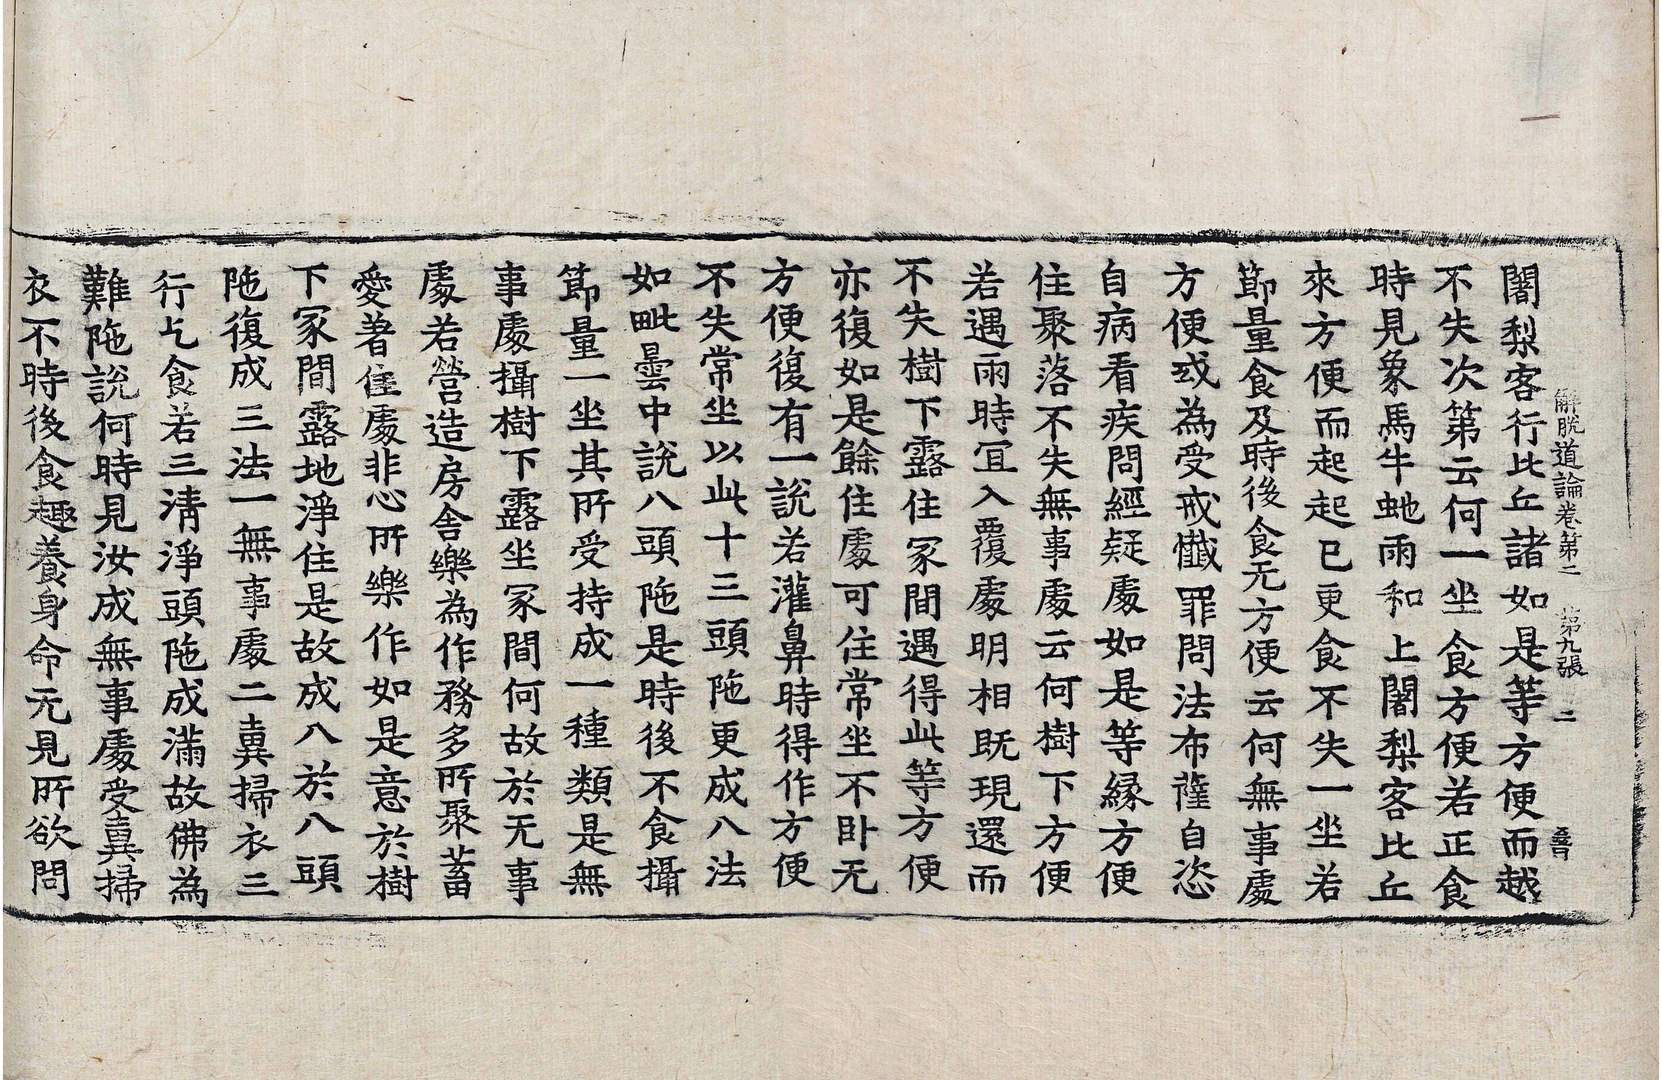 解脫道論卷第二 第九張 二
闍梨客行比丘諸如是等方便而越
不失次第云何一坐食方便若正食
時見象馬牛虵雨和上闍梨客比丘
來方便而起起已更食不失一坐若
節量食及時後食无方便云何無事處
方便或為受戒懺罪問法布薩自恣
自病看疾問經疑處如是等緣方便
住聚落不失無事處云何樹下方便
若遇雨時冝入覆處明相既現還而
不失樹下露住冢間遇得此等方便
亦復如是餘住處可住常坐不卧无
方便復有一說若灌鼻時得作方便
不失常坐以此十三頭陁更成八法
如毗曇中說八頭陁是時後不食攝
節量一坐其所受持成一種類是無
事處攝樹下露坐冢間何故於无事
處若營造房舍樂為作務多所聚蓄
愛著住處非心所樂作如是意於樹
下冢間露地淨住是故成八於八頭
陁復成三法一無事處二糞掃衣三
行乞食若三清淨頭陁成滿故佛為
難陁說何時見汝成無事處受糞掃
衣不時後食趣養身命无見所欲問